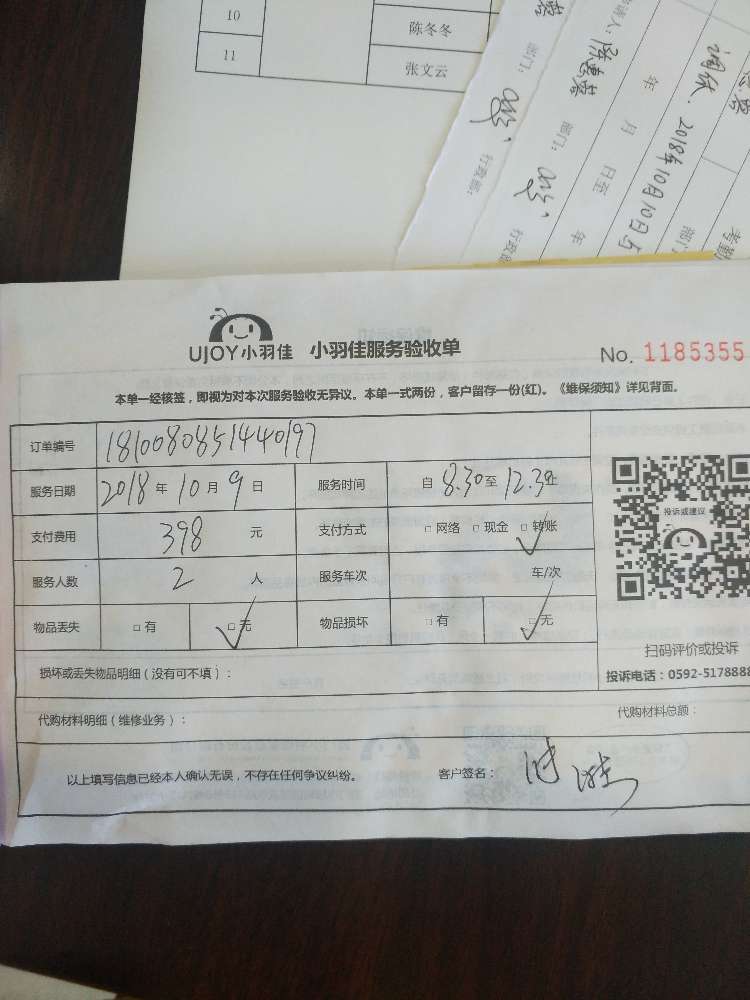 10
陈冬冬
11
张文云
部门:
行政部:
申请人:
部门:
行政部
年 月 日至 年
调休. 2018年10月10日
部门
考勤
UJOY小羽佳 小羽佳服务验收单
No. 1185355
本单一经核签,即视为对本次服务验收无异议。本单一式两份,客户留存一份(红)。《维保须知》详见背面。
订单编号 1810080851440197
服务日期 2018 年 10 月 9 日 服务时间 自 8.30 至 12.30 止
投诉或建议
支付费用 398 元 支付方式 □网络 □现金 □转账
服务人数 2 人 服务车次 车/次
物品丢失 □有 □无 物品损坏 □有 □无
扫码评价或投诉
损坏或丢失物品明细(没有可不填):
投诉电话:0592-5178888
代购材料明细(维修业务): 代购材料总额:
以上填写信息已经本人确认无误,不存在任何争议纠纷。 客户签名: